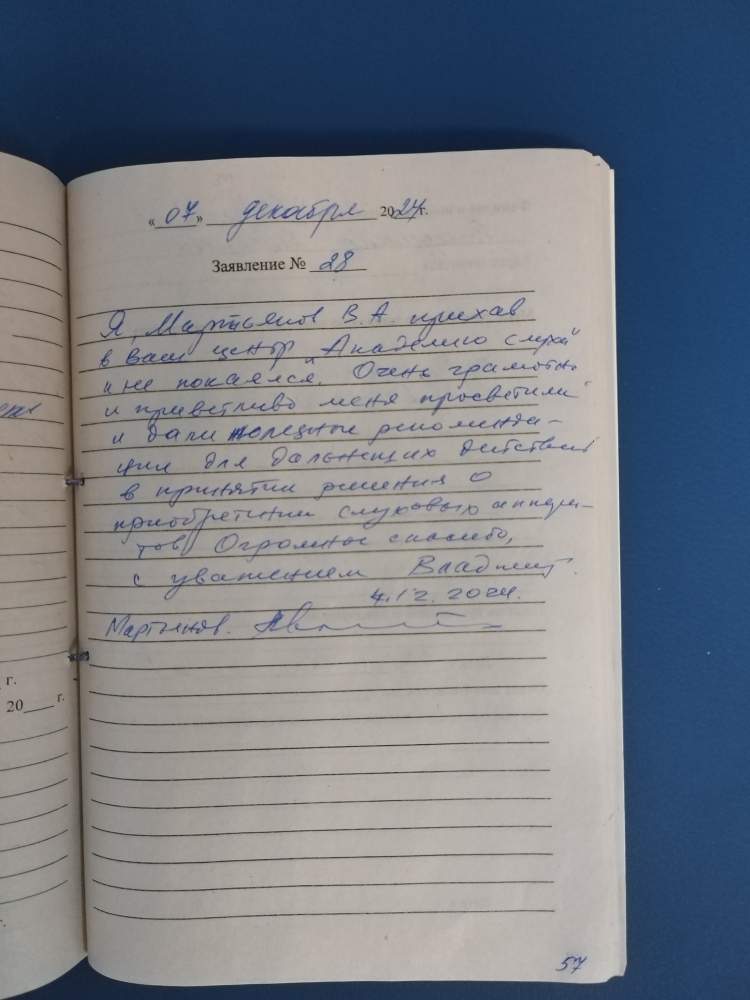 «07» декабря 2024г.
Заявление № 28
Я, Мартьянов В.А. приехав
в Ваш центр "Академию слуха"
и не покаялся. Очень грамотно
и приветливо меня просветили
и дали полезные рекоменда-
ции для дальнейших действий
в принятии решения о
приобретении слуховых аппара-
тов. Огромное спасибо,
с уважением Владимир.
4.12.2024.
Мартьянов.
г.
20___ г.
57